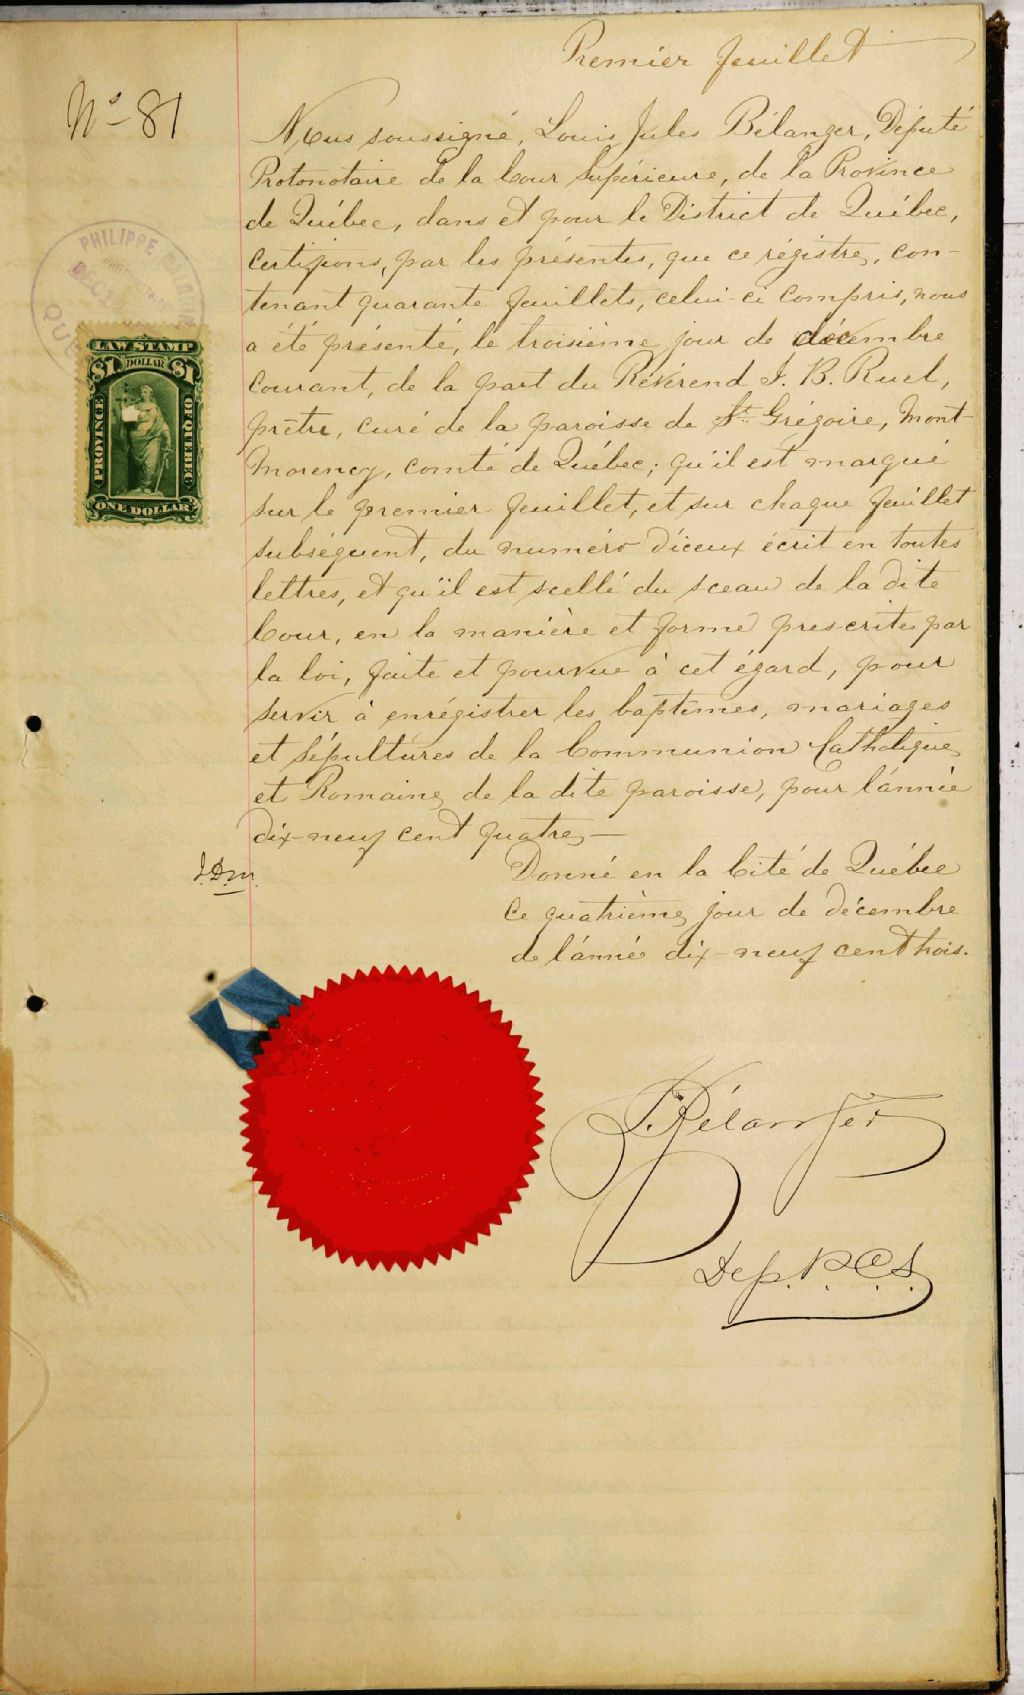 Premier feuillet
No 81
Nous soussigné, Louis Jules Bélanger, Député
Protonotaire de la Cour Supérieure, de la Province
de Québec, dans et pour le District de Québec,
Certifions, par les présentes, que ce régistre, con-
tenant quarante feuillets, celui-ci compris, nous
a été présenté, le troisième jour de décembre
courant, de la part du Révérend J. B. Ruel,
prêtre, curé de la paroisse de St. Grégoire, Mont-
Morency, comté de Québec; qu'il est marqué
sur le premier feuillet, et sur chaque feuillet
subséquent, du numéro d'iceux écrit en toutes
lettres, et qu'il est scellé du sceau de la dite
Cour, en la manière et forme prescrites par
la loi, faite et pourvue à cet égard, pour
servir à enrégistrer les baptêmes, mariages
et sépultures de la Communion Catholique
et Romaine de la dite paroisse, pour l'année
dix-neuf cent quatre,—
Donné en la Cité de Québec
Ce quatrième jour de décembre
de l'année dix-neuf cent trois.
J.D.M.
PHILIPPE
DEC
QUE
LAW STAMP
$1 DOLLAR $1
PROVINCE
OF QUEBEC
ONE DOLLAR
J. Bélanger
Dep. P.C.S.